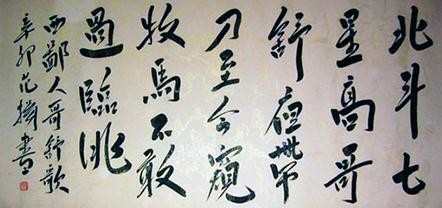 北斗七
星高哥
舒夜帶
刀至今窺
牧馬不敢
過臨洮
西鄙人哥舒歌
辛卯范書